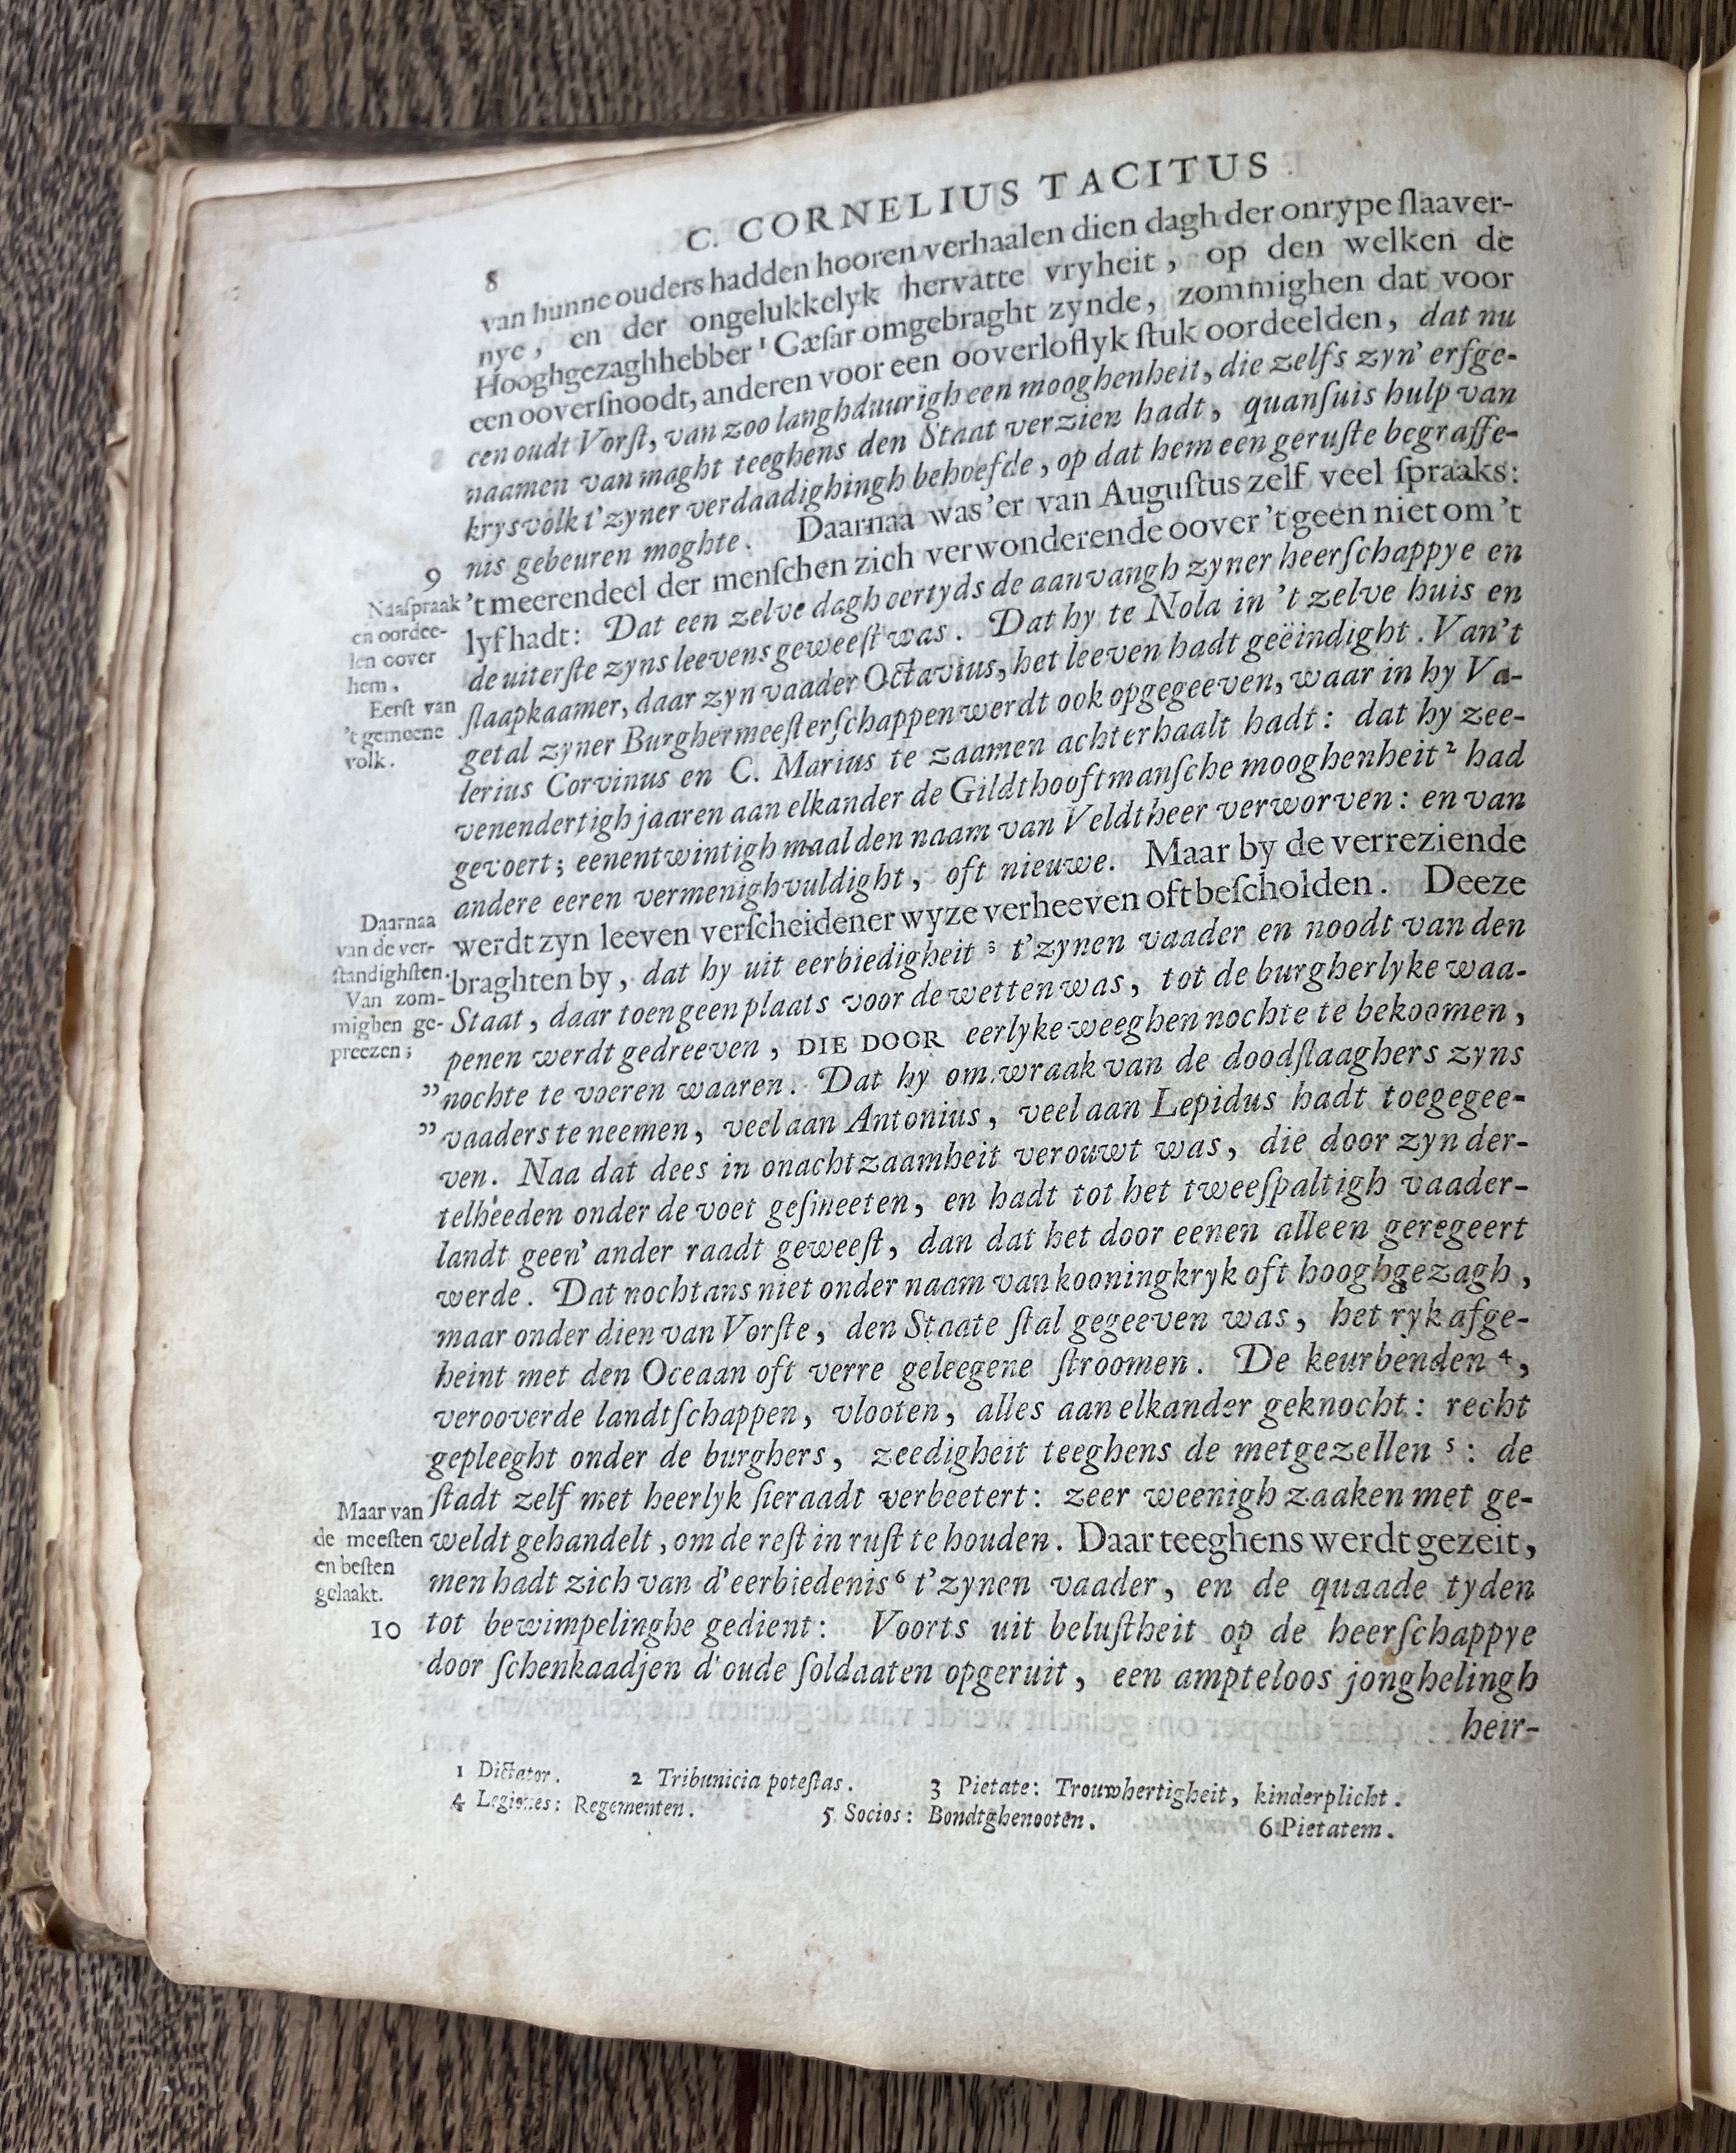 8
C. CORNELIUS TACITUS
van hunne ouders hadden hooren verhaalen dien dagh der onrype ſlaaver-
nye, en der ongelukkelyk hervatte vryheit, op den welken de
Hooghgezaghhebber ¹ Cæſar omgebraght zynde, zommighen dat voor
een ooverſnoodt, anderen voor een ooverloflyk ſtuk oordeelden, dat nu
een oudt Vorſt, van zoo langhduurigh een mooghenheit, die zelfs zyn' erfge-
naamen van maght teeghens den Staat verzien hadt, quanſuis hulp van
krysvolk t'zyner verdaadighingh behoefde, op dat hem een geruſte begraffe-
nis gebeuren moghte. Daarnaa was'er van Auguſtus zelf veel ſpraaks:
9
't meerendeel der menſchen zich verwonderende oover 't geen niet om 't
lyf hadt: Dat een zelve dagh eertyds de aanvangh zyner heerſchappye en
de uiterſte zyns leevens geweeſt was. Dat hy te Nola in 't zelve huis en
ſlaapkaamer, daar zyn vaader Octavius, het leeven hadt geëindight. Van't
getal zyner Burghermeeſterſchappen werdt ook opgegeeven, waar in hy Va-
lerius Corvinus en C. Marius te zaamen achterhaalt hadt: dat hy zee-
venendertigh jaaren aan elkander de Gildthooftmanſche mooghenheit ² had
gevoert; eenentwintigh maal den naam van Veldtheer verworven: en van
andere eeren vermenighvuldight, oft nieuwe. Maar by de verreziende
werdt zyn leeven verſcheidener wyze verheeven oft beſcholden. Deeze
braghten by, dat hy uit eerbiedigheit ³ t'zynen vaader en noodt van den
Staat, daar toen geen plaats voor de wetten was, tot de burgherlyke waa-
penen werdt gedreeven, DIE DOOR eerlyke weeghen nochte te bekoomen,
” nochte te voeren waaren. Dat hy om wraak van de doodſlaaghers zyns
” vaaders te neemen, veel aan Antonius, veel aan Lepidus hadt toegegee-
ven. Naa dat dees in onachtzaamheit verouwt was, die door zyn der-
telheeden onder de voet geſmeeten, en hadt tot het tweeſpaltigh vaader-
landt geen' ander raadt geweeſt, dan dat het door eenen alleen geregeert
werde. Dat nochtans niet onder naam van kooningkryk oft hooghgezagh,
maar onder dien van Vorſte, den Staate ſtal gegeeven was, het ryk afge-
heint met den Oceaan oft verre geleegene ſtroomen. De keurbenden ⁴,
verooverde landtſchappen, vlooten, alles aan elkander geknocht: recht
gepleeght onder de burghers, zeedigheit teeghens de metgezellen ⁵: de
ſtadt zelf met heerlyk ſieraadt verbeetert: zeer weenigh zaaken met ge-
weldt gehandelt, om de reſt in ruſt te houden. Daar teeghens werdt gezeit,
men hadt zich van d'eerbiedenis ⁶ t'zynen vaader, en de quaade tyden
10
tot bewimpelinghe gedient: Voorts uit beluſtheit op de heerſchappye
door ſchenkaadjen d'oude ſoldaaten opgeruit, een ampteloos jonghelingh
heir-
Naaſpraak
en oordee-
len oover
hem,
Eerſt van
't gemeene
volk.
Daarnaa
van de ver-
ſtandighſten.
Van zom-
mighen ge-
preezen;
Maar van
de meeſten
en beſten
gelaakt.
1 Dictator. 2 Tribunicia poteſtas. 3 Pietate: Trouwhertigheit, kinderplicht.
4 Legiones: Regementen. 5 Socios: Bondtghenooten. 6 Pietatem.